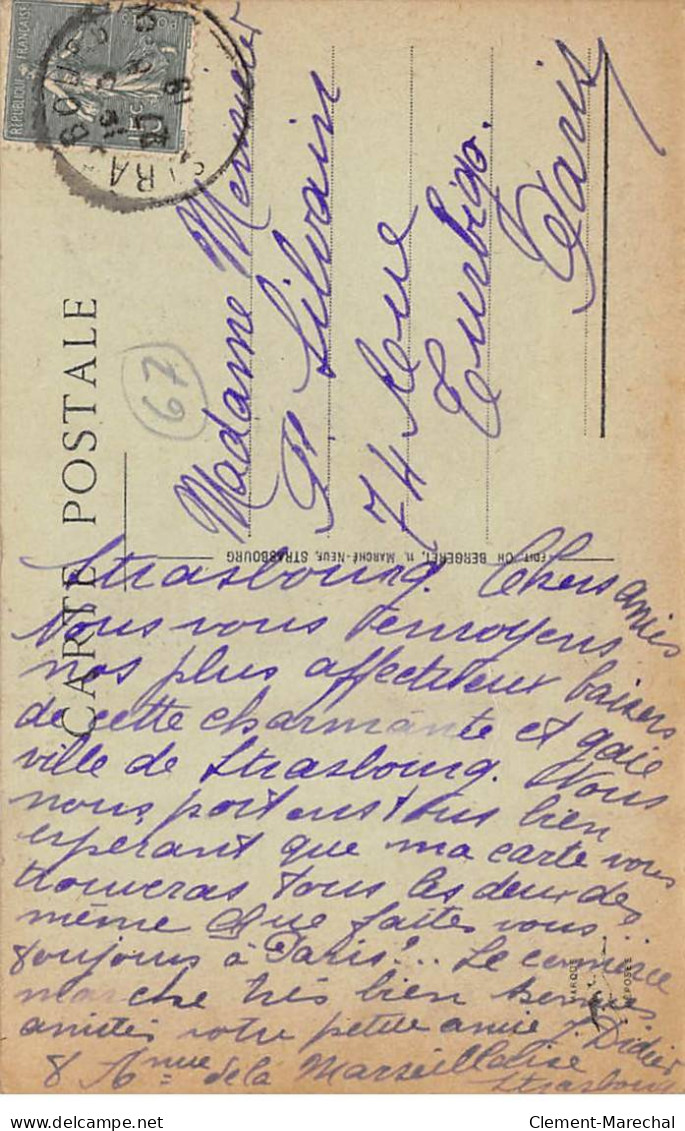 RÉPUBLIQUE FRANÇAISE
POSTES
STRASBOURG
CARTE POSTALE
67
Madame Mercier
P. Silvain
74 Rue
Turbigo.
Paris
EDIT. CH. BERGERET, 11, MARCHÉ-NEUF, STRASBOURG
Strasbourg. Chers amies
Nous vous renvoyens
nos plus affectueux baisers
de cette charmante et gaie
ville de Strasbourg. Nous
nous portons tous bien
esperant que ma carte vous
trouveras tous les deux de
même Que faites vous...
toujours à Paris?... Le commerce
marche très bien bonnes
amitiés votre petite amie J. Didier
8 Anue de la Marseillaise
Strasbourg
MARQUE DÉPOSÉE
Clement-Marechal